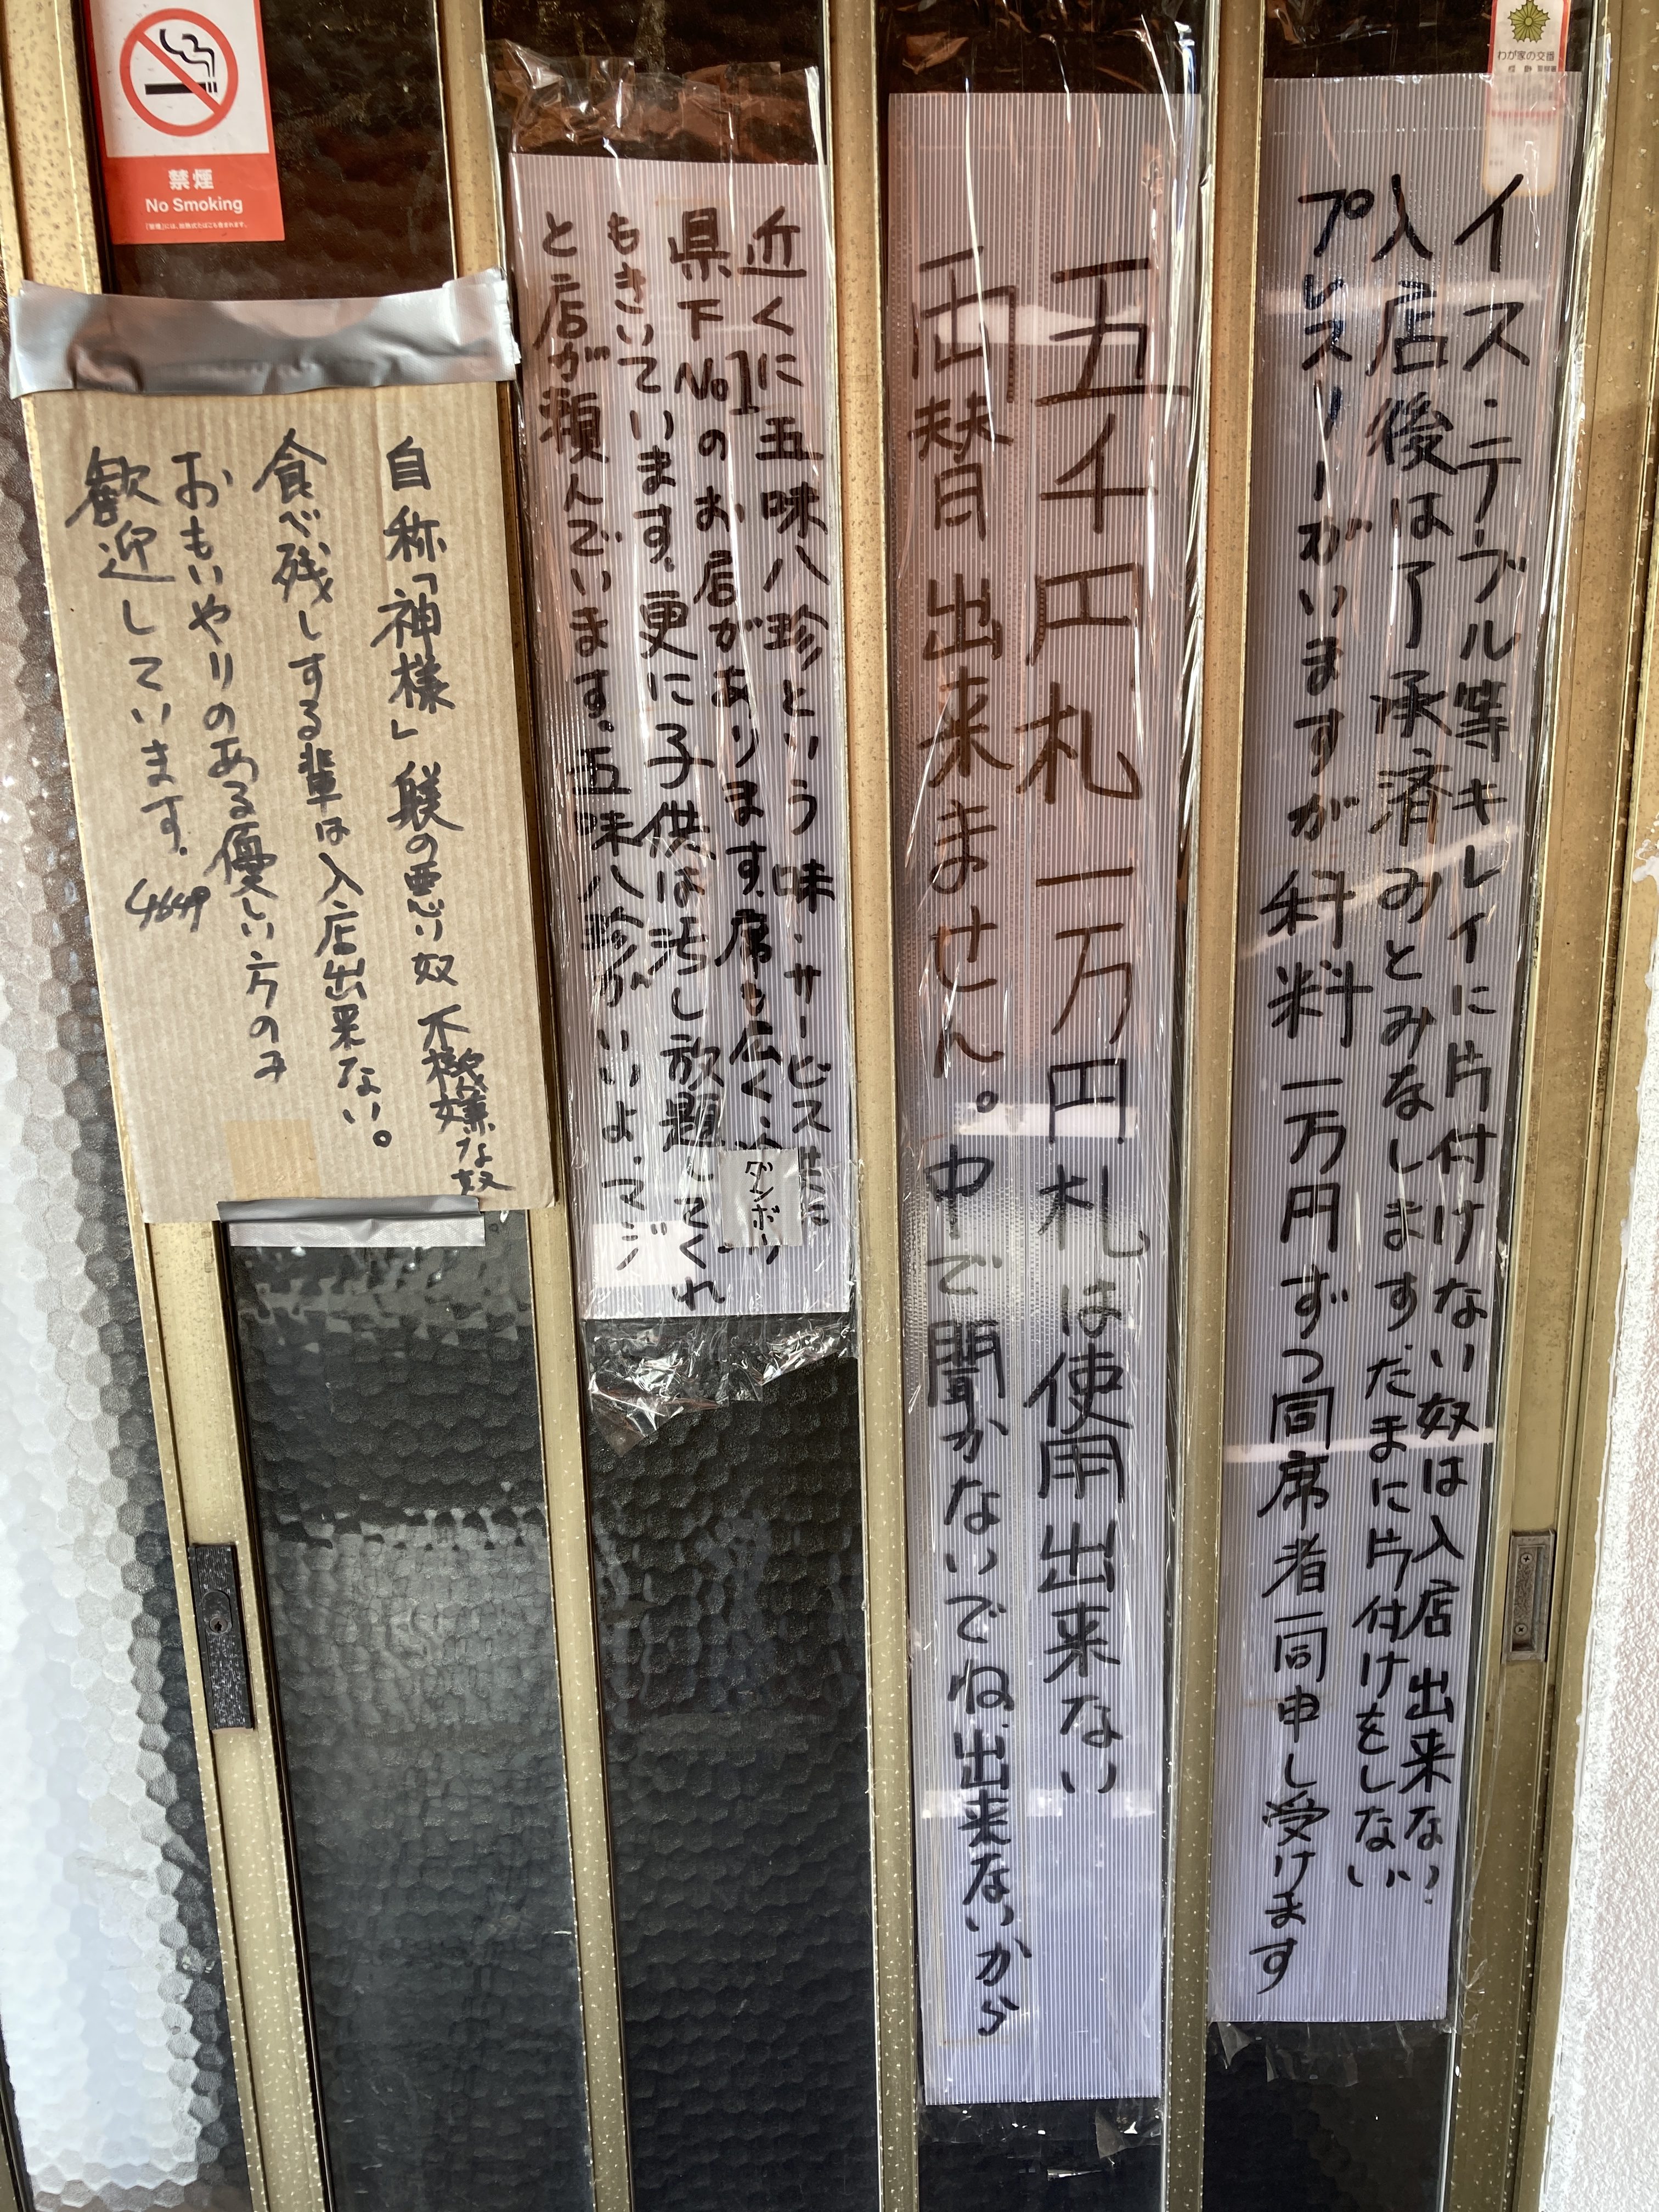 わが家の交番
イス・テーブル等キレイに片付けない奴は入店出来ない.
入店後は了承済みとみなします.たまに片付けをしない
プレスリーがいますが科料一万円ずつ同席者一同申し受けます
五千円札 一万円札は使用出来ない
両替出来ません。中で聞かないでね出来ないから
近くに五味八珍という味・サービス共に
県下No1のお店があります.席も広く
ダンボリ
もきいています.更に子供は汚し放題してくれ
と店が頼んでいます.五味八珍がいいよ.マジ
禁煙
No Smoking
自称「神様」躾の悪い奴 不機嫌な奴
食べ残しする輩は入店出来ない。
おもいやりのある優しい方のみ
歓迎しています.
4649